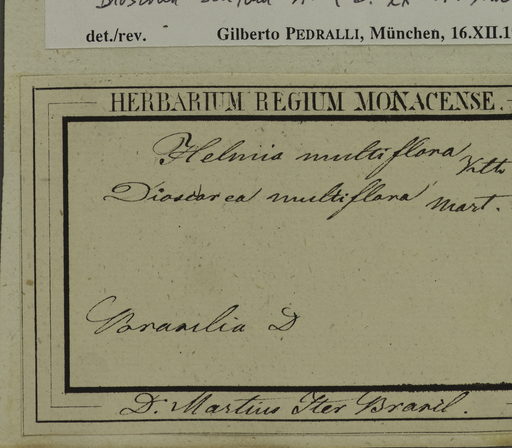 Dioscorea
det./rev. Gilberto PEDRALLI, München, 16.XII.1
HERBARIUM REGIUM MONACENSE.
Helmia multiflora
Dioscorea multiflora Mart.
Brasilia D
Dr. Martius Iter Brasil.